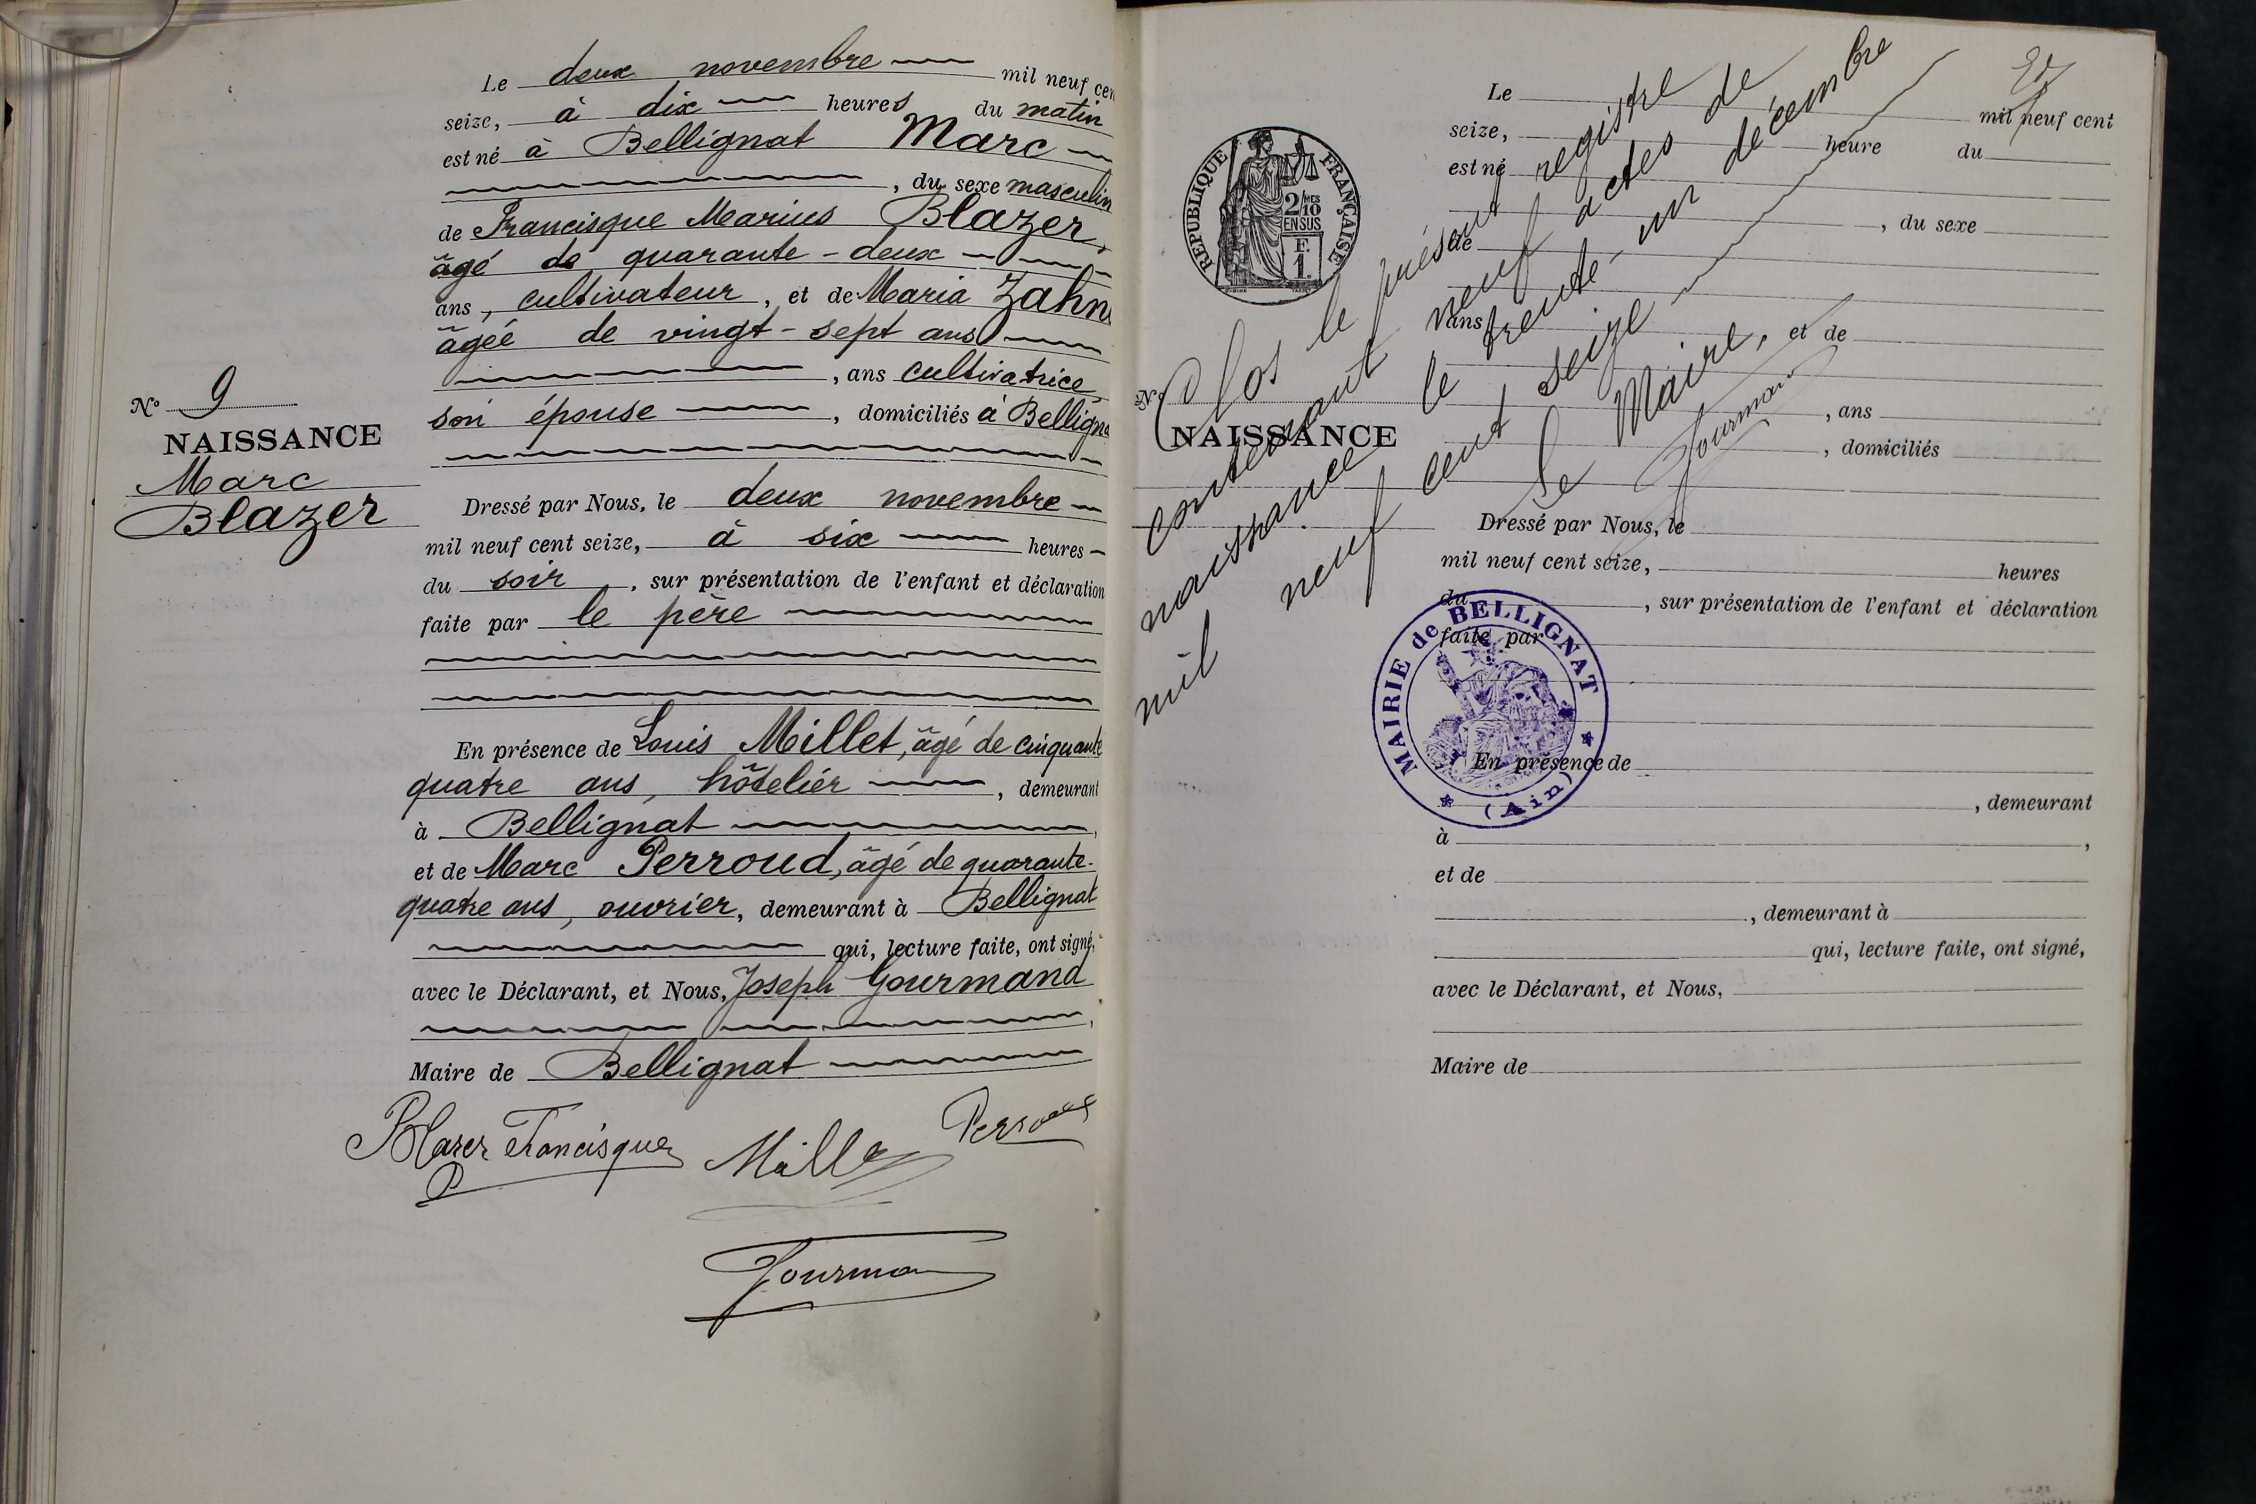 Le deux novembre mil neuf cen
seize, à dix heures du matin
est né à Bellignat Marc
, du sexe masculin
de Francisque Marius Blazer,
âgé de quarante-deux
ans, cultivateur, et de Maria Zahn
âgée de vingt-sept ans
, ans cultivatrice
son épouse , domiciliés à Belligna
N° 9
NAISSANCE
Marc
Blazer
Dressé par Nous, le deux novembre
mil neuf cent seize, à six heures
du soir , sur présentation de l'enfant et déclaration
faite par le père
En présence de Louis Millet, âgé de cinquante
quatre ans, hôtelier , demeurant
à Bellignat ,
et de Marc Perroud, âgé de quarante-
quatre ans, ouvrier, demeurant à Bellignat
qui, lecture faite, ont signé,
avec le Déclarant, et Nous, Joseph Gourmand
,
Maire de Bellignat
Blazer Francisque Millet Perroud
Gourman
Le mil neuf cent
seize, heure du
est né
, du sexe
de
ans , et de
, ans
, domiciliés
RÉPUBLIQUE FRANÇAISE
2/10MES
EN SUS
F.
1.
N°
NAISSANCE
Clos le présent registre
contenant neuf actes de
naissance le trente-un décembre
mil neuf cent seize
Le Maire,
Gourman
Dressé par Nous, le
mil neuf cent seize, heures
du , sur présentation de l'enfant et déclaration
faite par
MAIRIE de BELLIGNAT
(Ain)
En présence de
, demeurant
à ,
et de
, demeurant à
qui, lecture faite, ont signé,
avec le Déclarant, et Nous,
Maire de